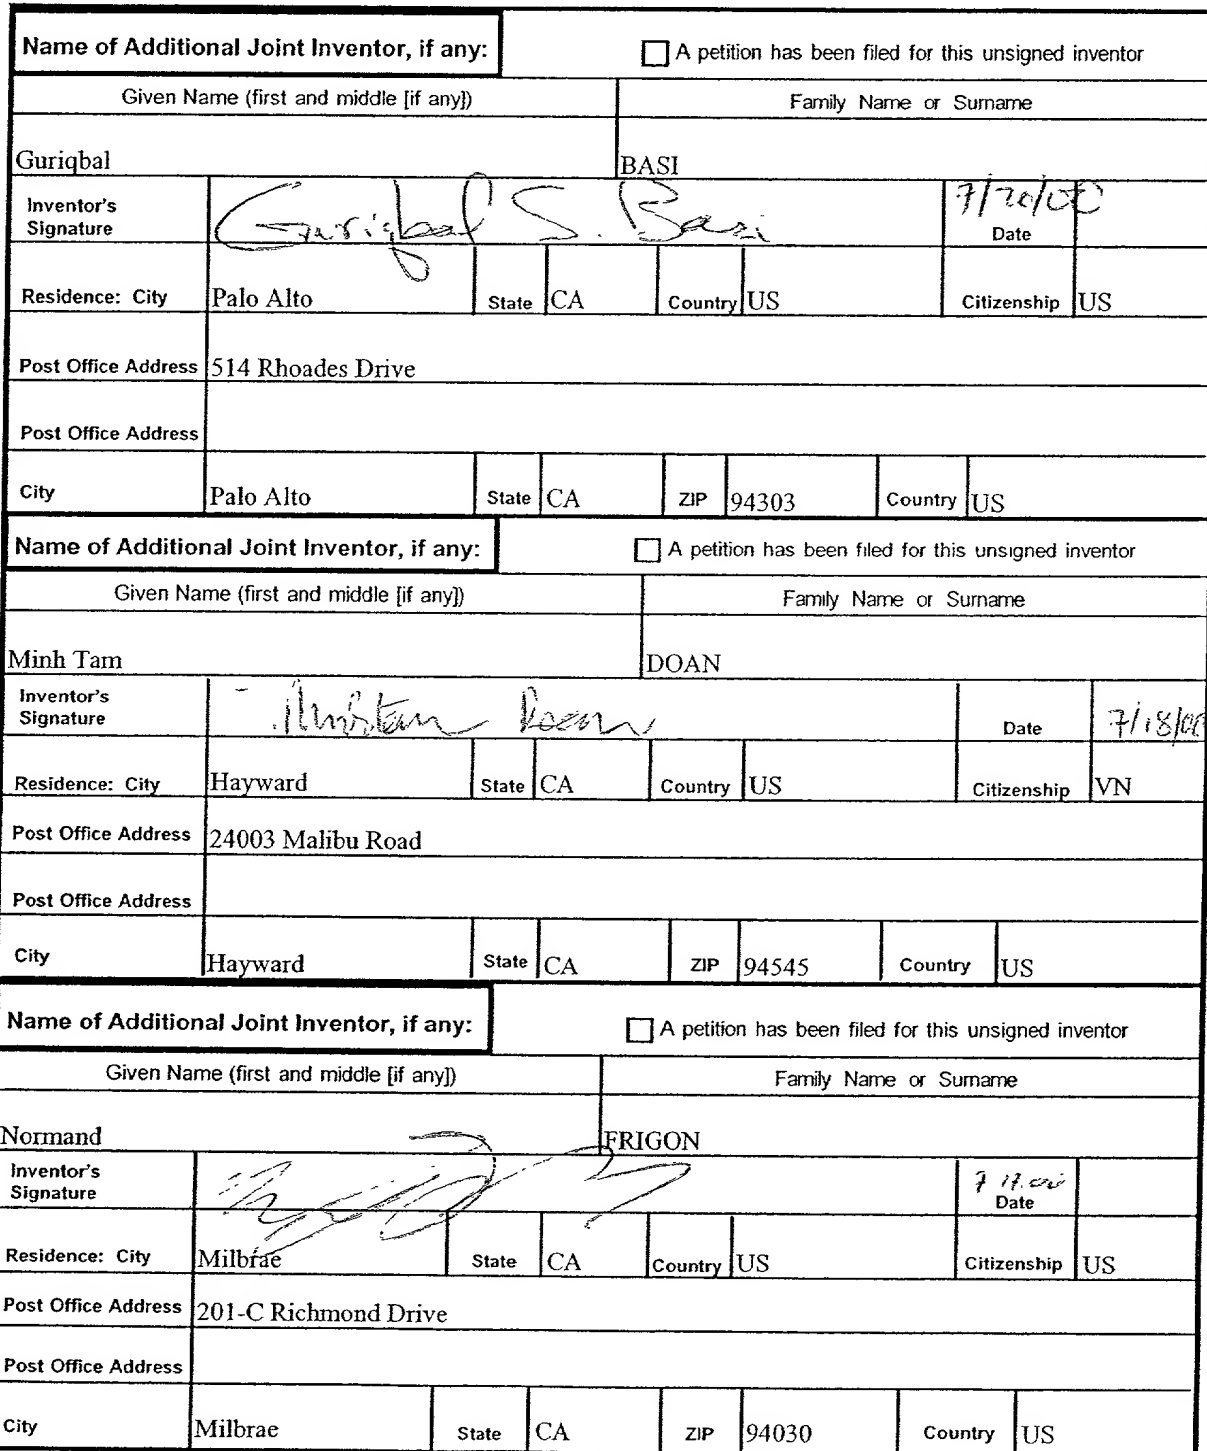 Name of Additional Joint Inventor, if any: A petition has been filed for this unsigned inventor
Given Name (first and middle [if any]) Family Name or Surname
Guriqbal BASI
Inventor's Signature Guriqbal S. Basi 7/20/00 Date
Residence: City Palo Alto State CA Country US Citizenship US
Post Office Address 514 Rhoades Drive
Post Office Address
City Palo Alto State CA ZIP 94303 Country US
Name of Additional Joint Inventor, if any: A petition has been filed for this unsigned inventor
Given Name (first and middle [if any]) Family Name or Surname
Minh Tam DOAN
Inventor's Signature Date 7/18/00
Residence: City Hayward State CA Country US Citizenship VN
Post Office Address 24003 Malibu Road
Post Office Address
City Hayward State CA ZIP 94545 Country US
Name of Additional Joint Inventor, if any: A petition has been filed for this unsigned inventor
Given Name (first and middle [if any]) Family Name or Surname
Normand FRIGON
Inventor's Signature Date
Residence: City Milbrae State CA Country US Citizenship US
Post Office Address 201-C Richmond Drive
Post Office Address
City Milbrae State CA ZIP 94030 Country US